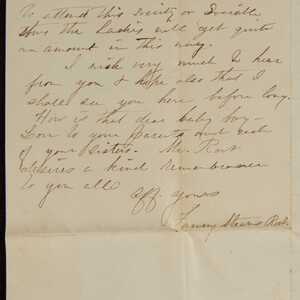 To attend this Society or Sociable
thus the Ladies will get quite
an amount in this way.
I wish very much to hear
from you & hope also that I
shall see you here before long.
How is that dear baby boy -
Love to your parents and each
of your sisters. Mr.
desires a kind remembrance
to you all
Aff. yours
Fanny Stearns